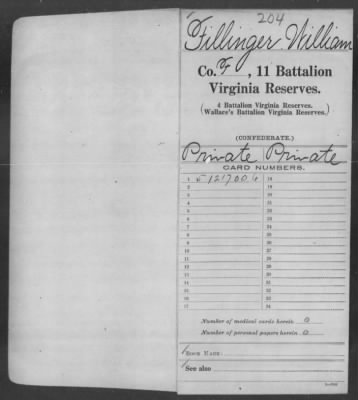 204
Fillinger William
Co. F, 11 Battalion
Virginia Reserves.
(4 Battalion Virginia Reserves.
Wallace's Battalion Virginia Reserves.)
(CONFEDERATE.)
Private Private
CARD NUMBERS.
1 18
2 19
3 20
4 21
5 22
6 23
7 24
8 25
9 26
10 27
11 28
12 29
13 30
14 31
15 32
16 33
17 34
Number of medical cards herein 0
Number of personal papers herein 0
BOOK MARK:
See also